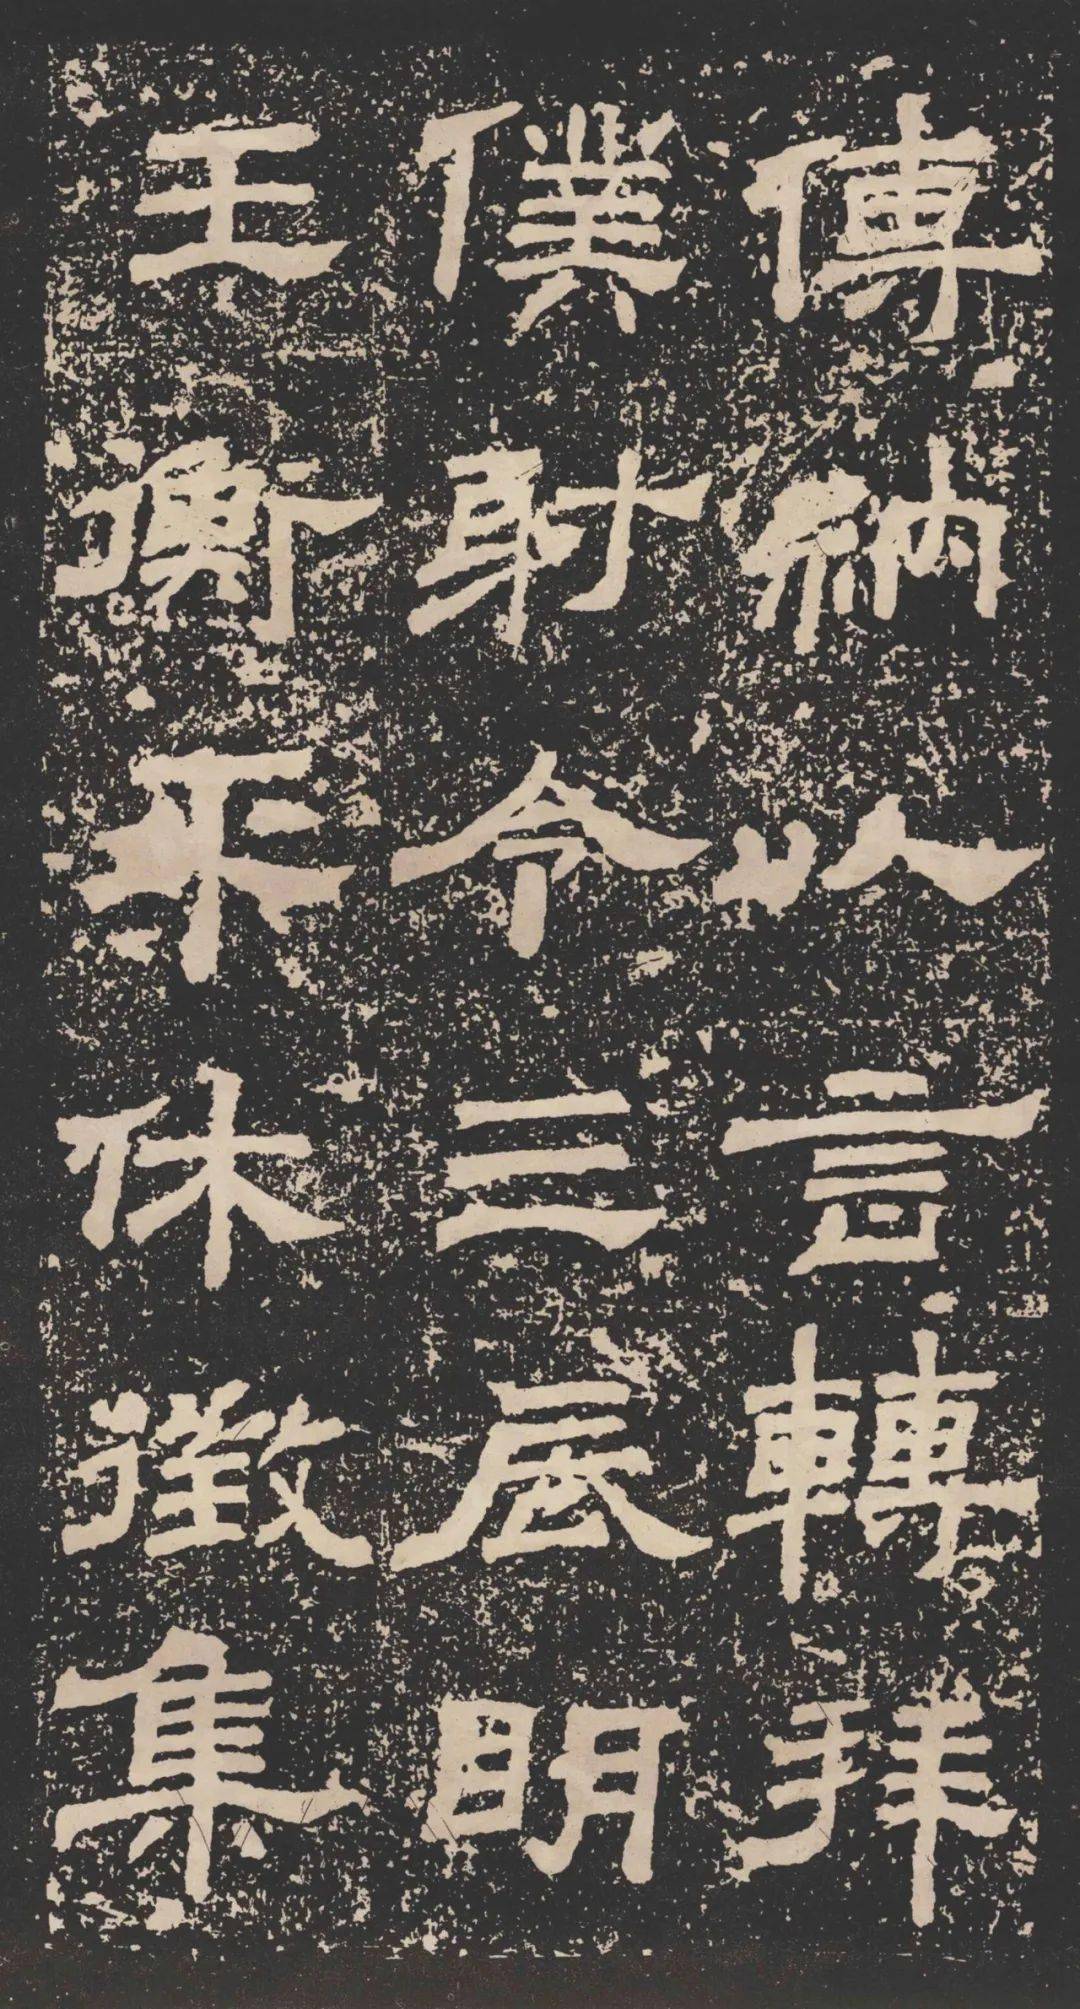 傅納以言轉拜
僕射令三辰眀
王衡不休徵集